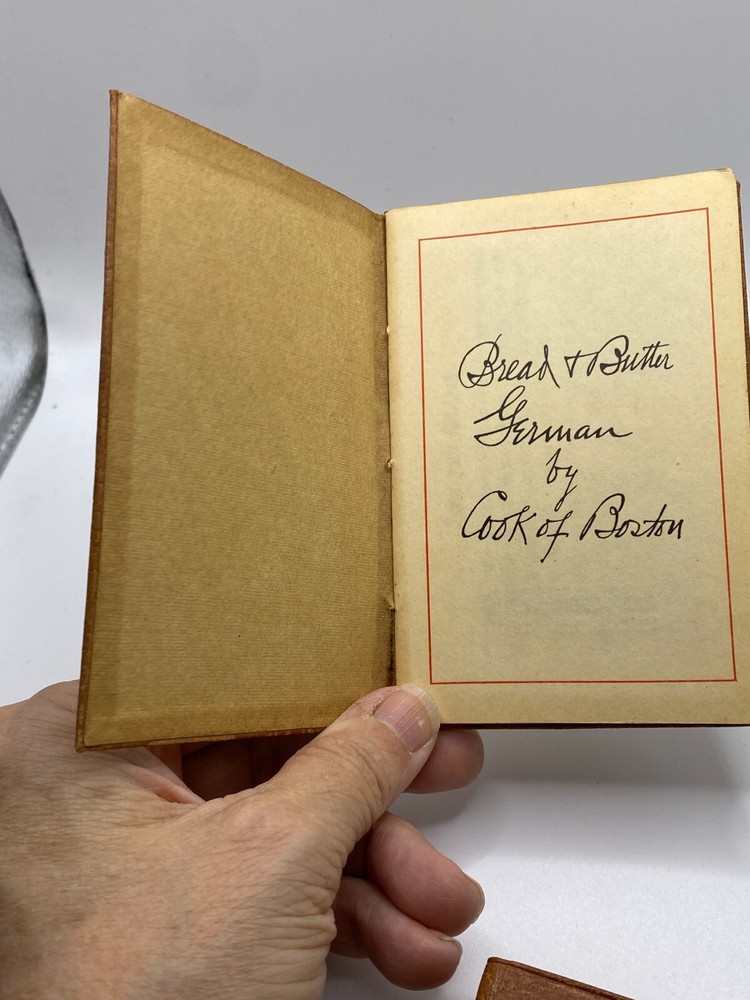 Bread & Butter
German
by
Cook of Boston